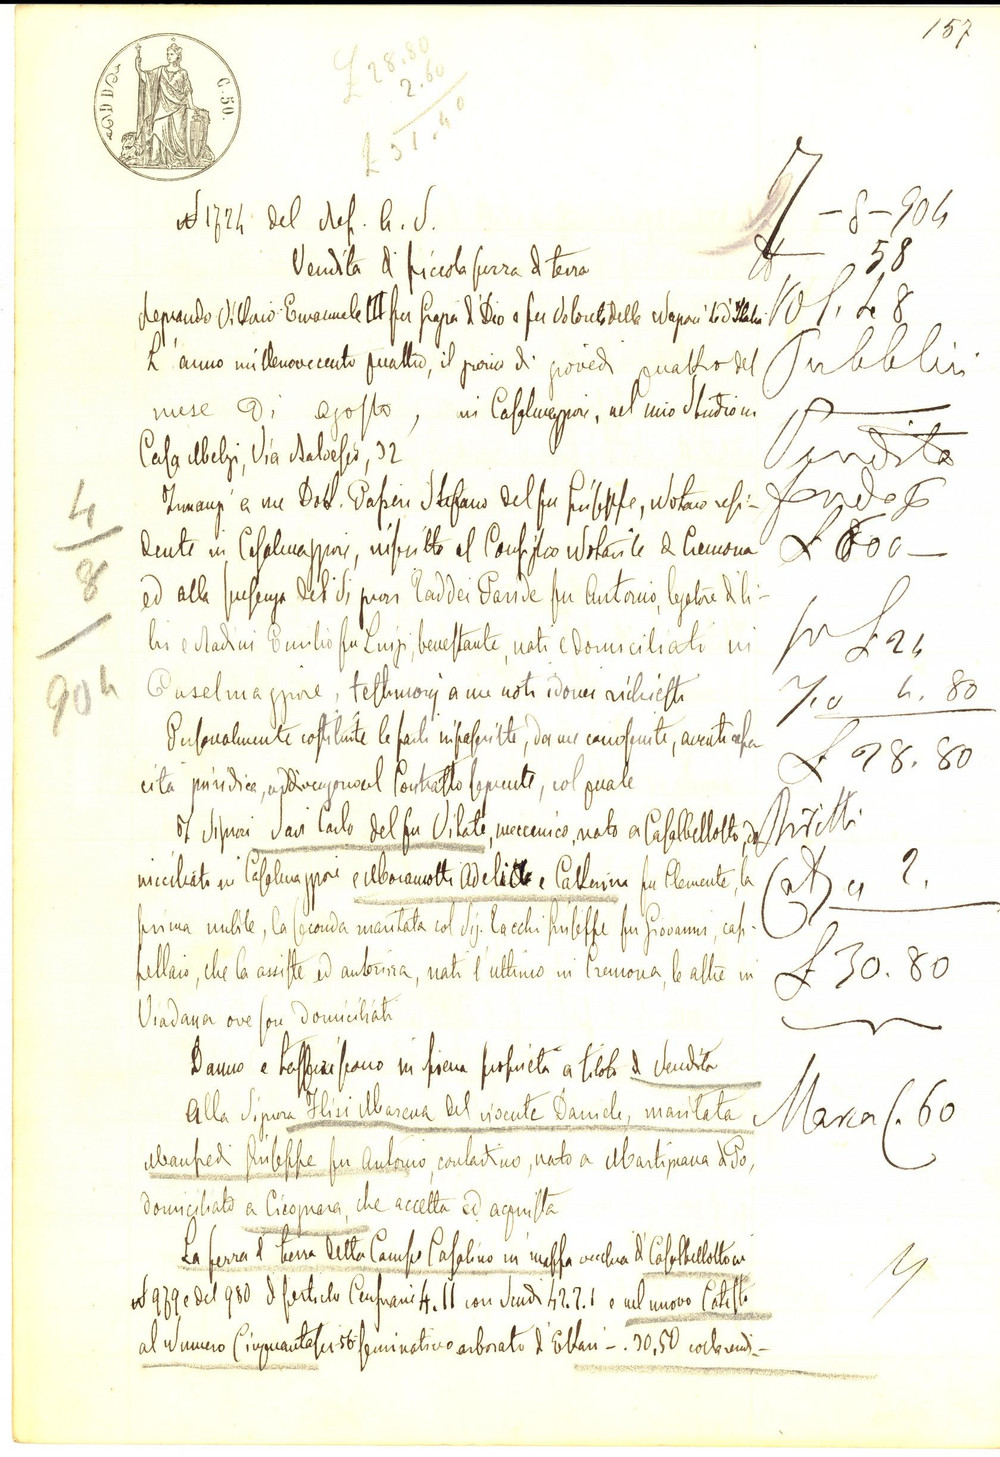 157
C. 50.
£ 28.80
2.60
£ 31.40
N 1724 del Rep. A. V.
Vendita di piccola pezza di terra
Regnando Vittorio Emanuele III per grazia di Dio e per Volontà della Nazione Re d'Italia
L'anno millenovecento quattro, il giorno di giovedì quattro del
mese di agosto, in Casalmaggiore, nel mio Studio in
Casa Melzi, Via Baldesio, 32
Innanzi a me Dott. Stefano del fu Giuseppe, Notaro resi-
dente in Casalmaggiore, inscritto al Consiglio Notarile di Cremona
ed alla presenza dei Signori Taddei Paride fu Antonio, legatore di li-
bri e Nadini Emilio fu Luigi, benestante, nati e domiciliati in
Casalmaggiore, testimonj a me noti idonei richiesti
Personalmente costituite le parti infrascritte, da me conosciute, aventi capa
cità giuridica, addivengono al Contratto seguente, col quale
I Signori Savi Carlo del fu Vitale, meccanico, nato a Casalbellotto, do
miciliato in Casalmaggiore e Moramotti Adelaide e Catterina fu Clemente, la
prima nubile, la seconda maritata col Sig. Tacchi Giuseppe fu Giovanni, cap-
pellaio, che la assiste ed autorizza, nati l'ultimo in Cremona, le altre in
Viadana ove son domiciliati
Danno e trasferiscono in piena proprietà a titolo di Vendita
Alla Signora Marena del vivente Daniele, maritata
Manfredi Giuseppe fu Antonio, contadino, nato a Martignana di Po,
domiciliato a Cicognara, che accetta ed acquista
La pezza di terra detta Campo Casalino in mappa vecchia di Casalbellotto ai
N 979 e del 980 di pertiche Censuarie 4.11 con Scudi 42.2.1 e nel nuovo Catasto
al Numero Cinquantasei 56 seminativo arborato di Ettari -.30,50 colla rendi-
4
8
904
7 - 8 - 904
N 58
Vol. 48
Pubblici
Vendita
fondo
£ 600 -
£ 24
4.80
£ 28.80
Diritti
2.
£ 30.80
Marca C. 60